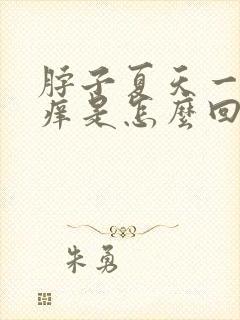 脖子夏天一
痒是怎麼回
朱勇